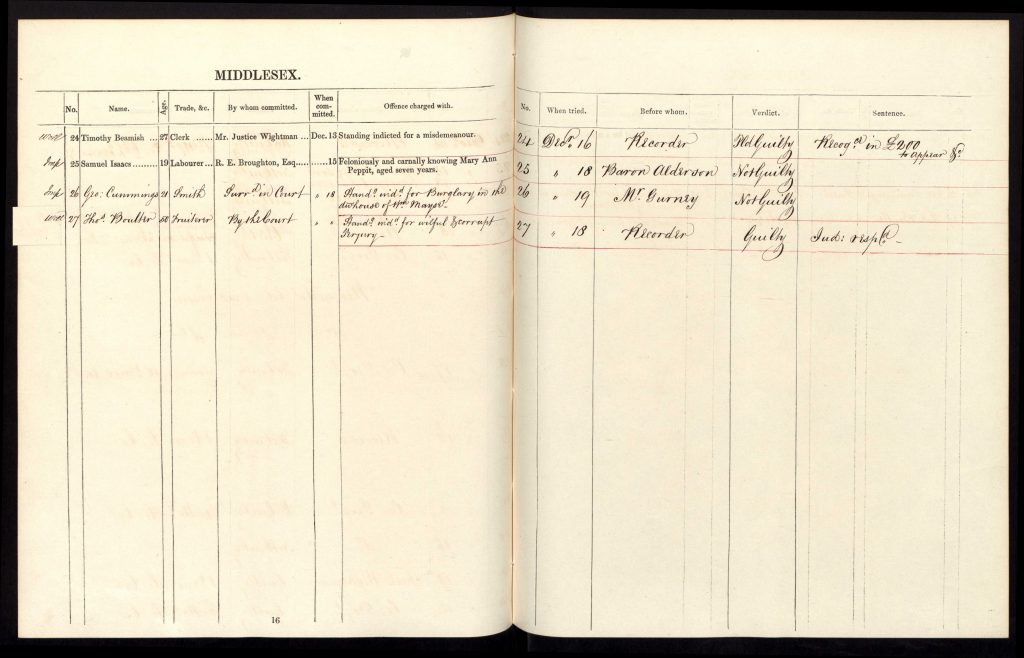 MIDDLESEX.
No. Name. Age. Trade, &c. By whom committed. When com- mitted. Offence charged with.
No. When tried. Before whom. Verdict. Sentence.
24 Timothy Beamish ... 27 Clerk ...... Mr. Justice Wightman ... Dec. 13 Standing indicted for a misdemeanour.
24 Decr. 16 Recorder Pld Guilty Recogd in £200
to appear &c
Imp 25 Samuel Isaacs ......... 19 Labourer ... R. E. Broughton, Esq. ...... 15 Feloniously and carnally knowing Mary Ann
Peppit, aged seven years.
25 " 18 Baron Alderson Not Guilty
Imp 26 Geo. Cummings 21 Smith Surrd in Court " 18 Standg indd for Burglary in the
dw house of Wm Mayes
26 " 19 Mr. Gurney Not Guilty
27 Thos. Boulter 50 Fruiterer By the Court " " Standg indd for wilful & corrupt
Perjury —
27 " 18 Recorder Guilty Jud: respd —
16